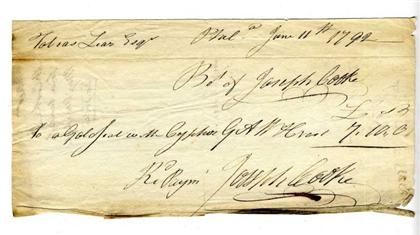 Tobias Lear Esqr Philaa June 11th 1792
Bt of Joseph Cooke
£ s d
to a Gold Seal wth Cypher G A W 7.10.0
Recd Paymt Joseph Cooke